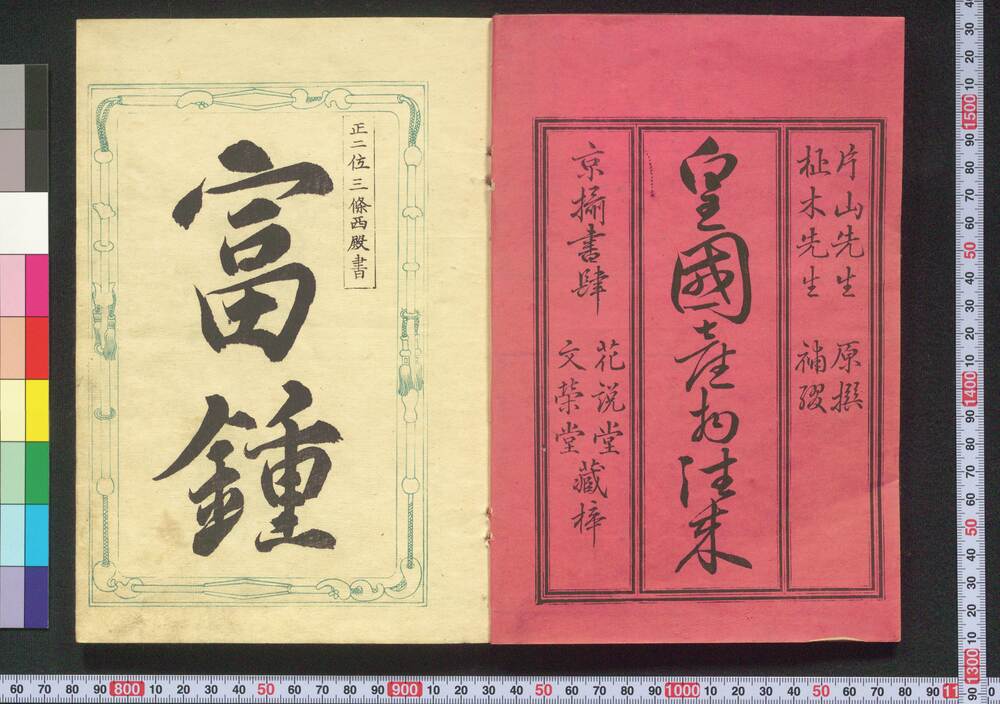 片山先生 原撰
柾木先生 補綴
皇國産物往来
京攝書肆
花説堂
文榮堂
藏梓
正二位三條西殿書
富
鍾